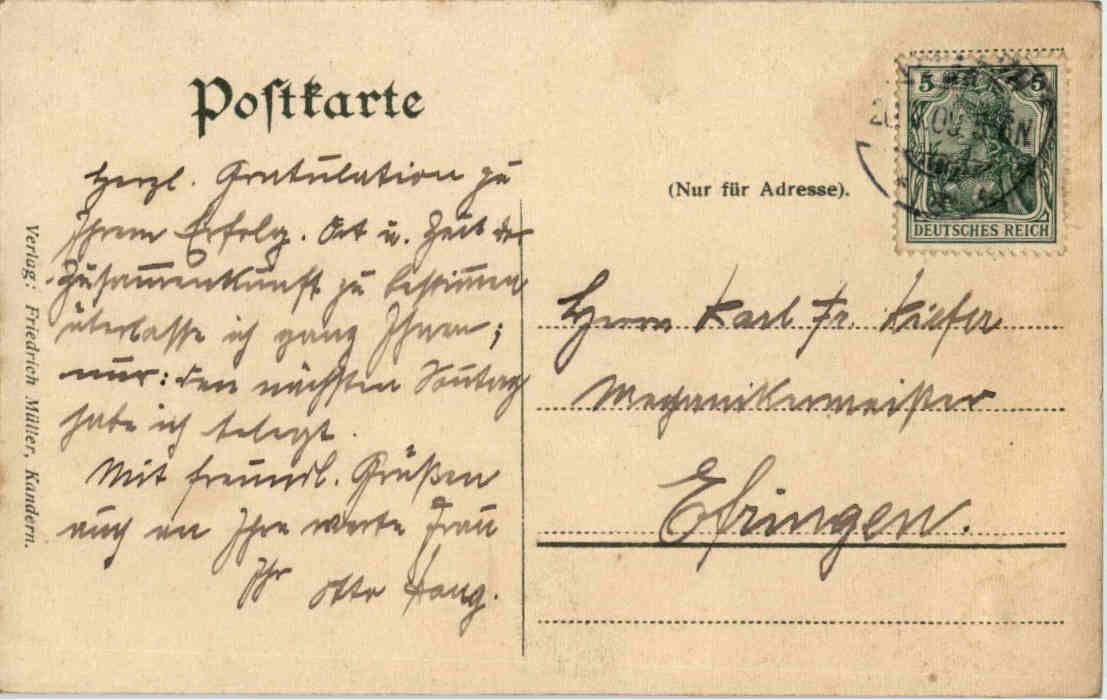 Postkarte
Herzl. Gratulation zu
Ihrem Erfolg. Ort u. Zeit der
Zusammenkunft zu bestimmen
überlasse ich ganz Ihnen;
nur: den nächsten Sonntag
habe ich belegt.
Mit freundl. Grüßen
auch an Ihre werte Frau
Ihr Otto Haug.
Verlag: Friedrich Müller, Kandern.
5 5
DEUTSCHES REICH
(Nur für Adresse).
Herrn Karl Fr. Kiefer
Mechanikermeister
Efringen.